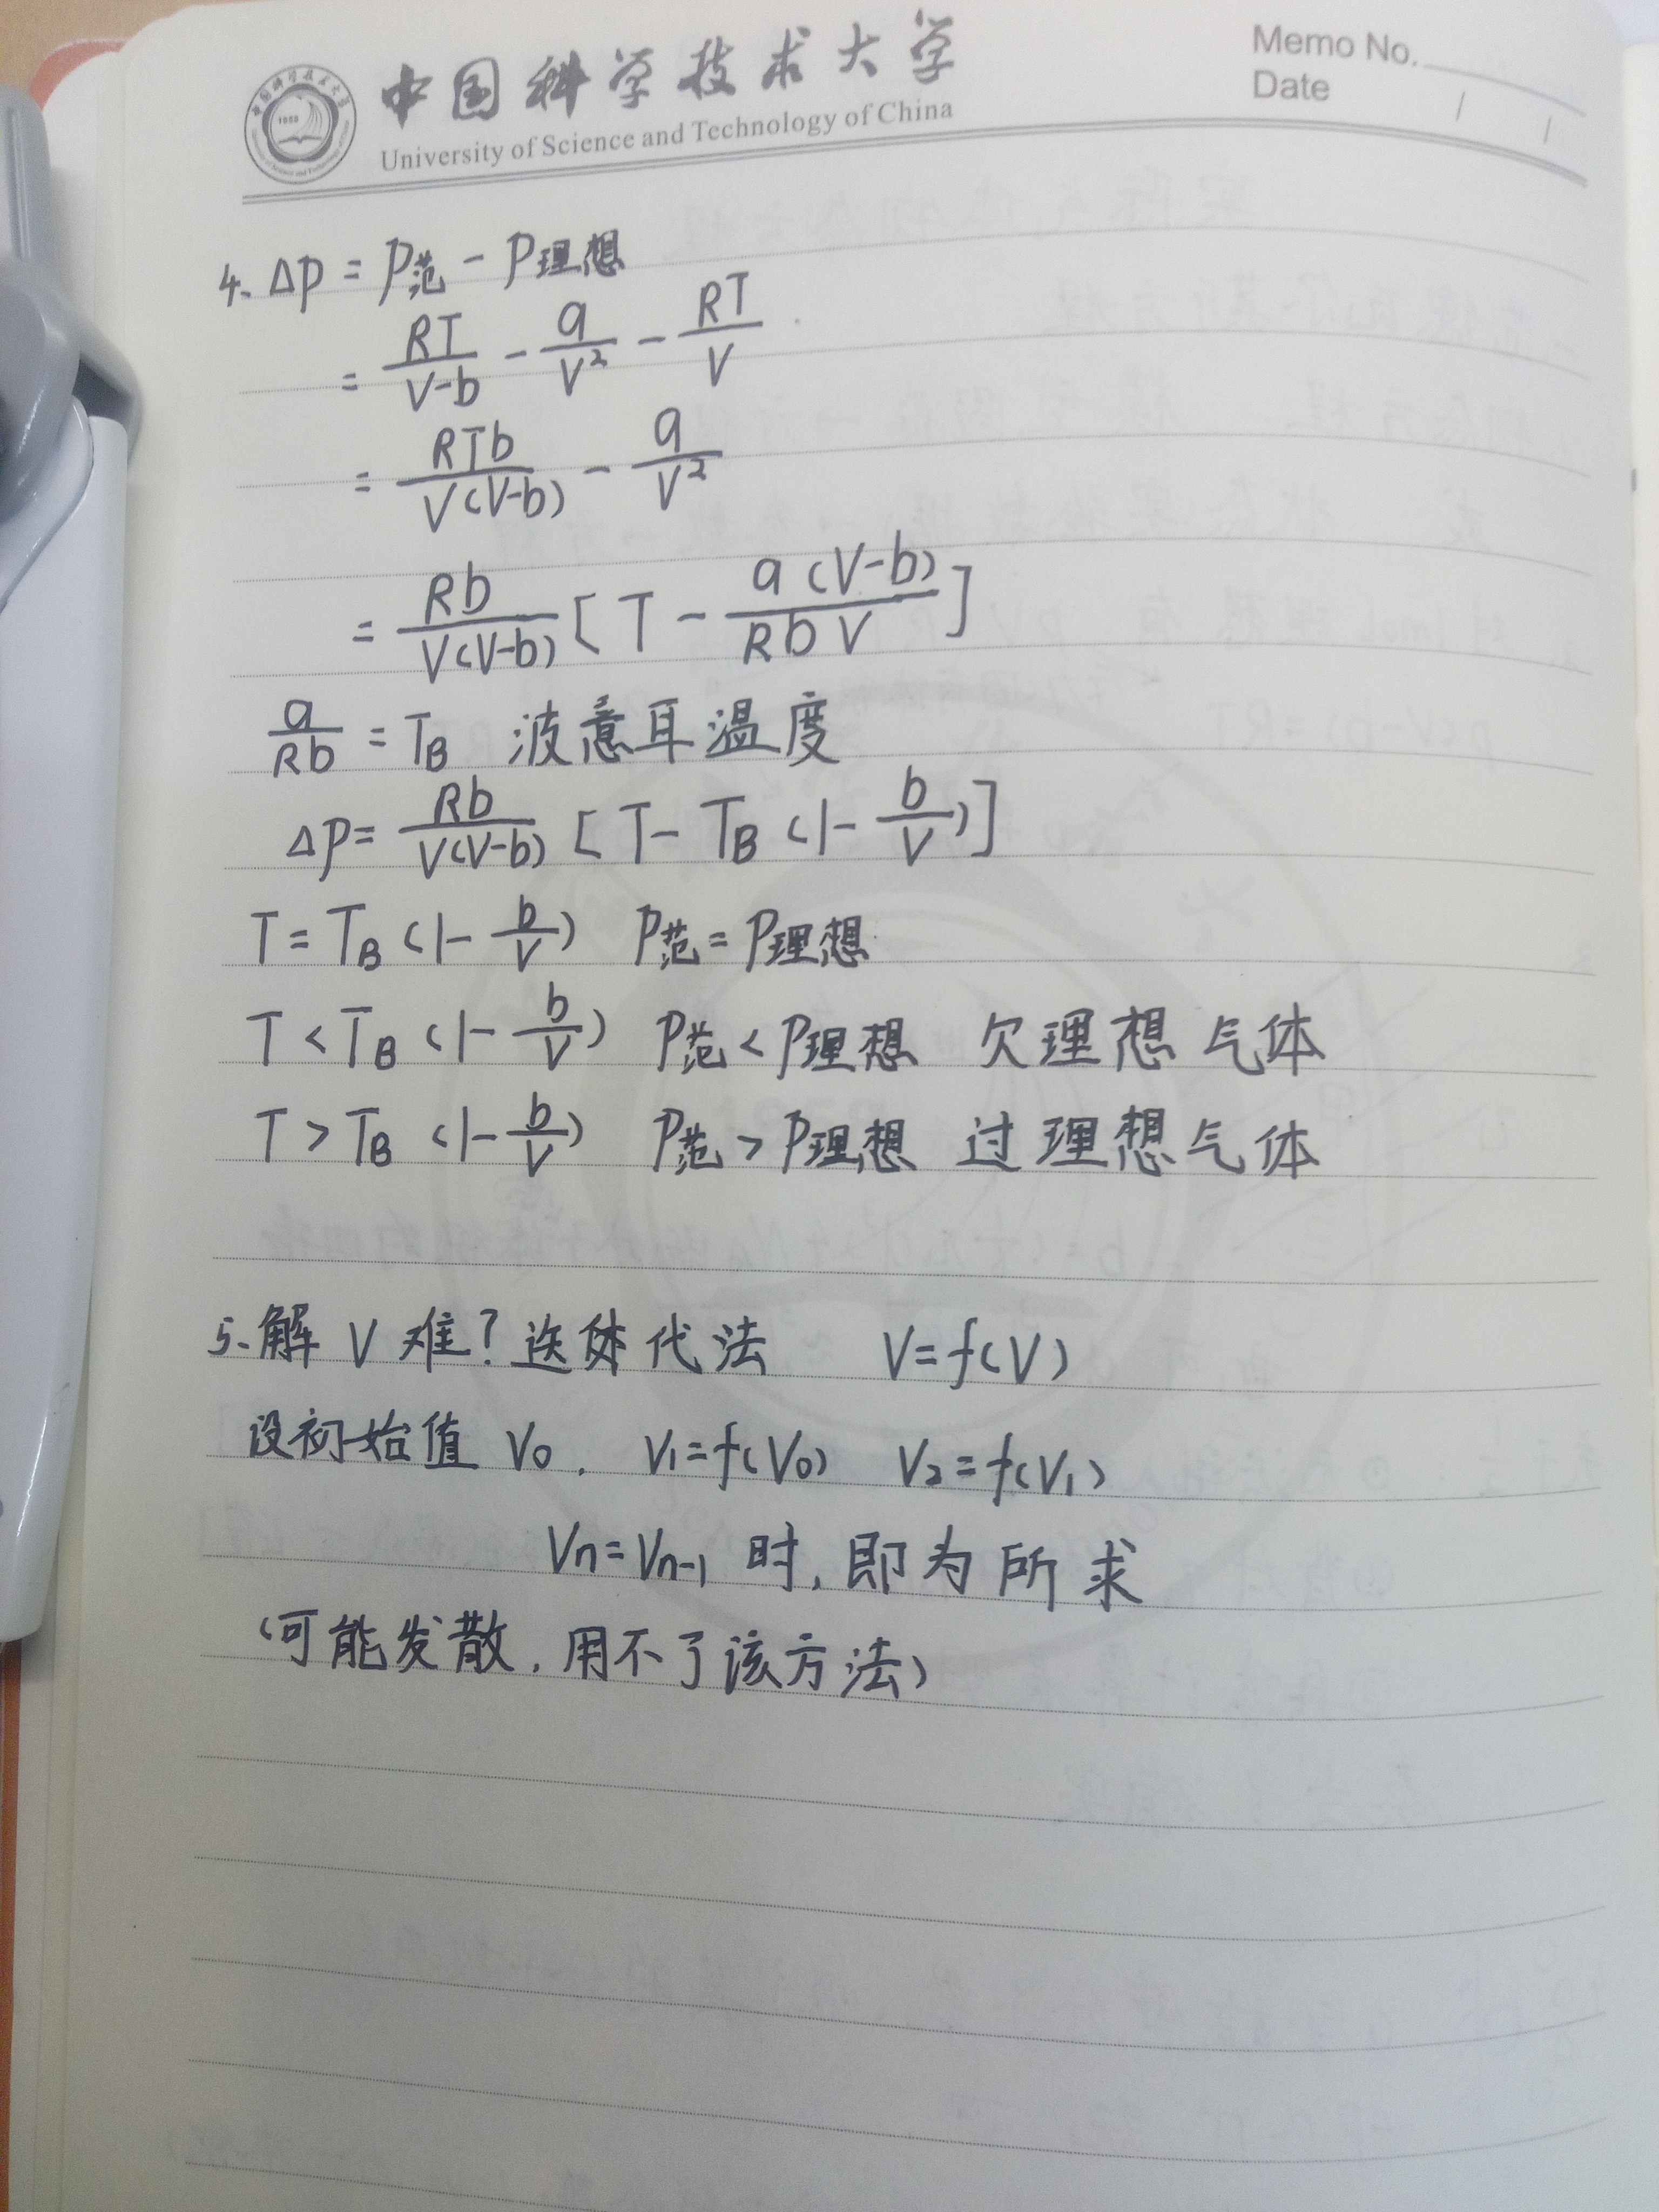 中国科学技术大学
University of Science and Technology of China
Memo No.
Date / /
4. Δp = p范 - p理想
= RT/(V-b) - a/V² - RT/V
= RTb/(V(V-b)) - a/V²
= Rb/(V(V-b)) [T - a(V-b)/(RbV)]
a/(Rb) = T_B 波意耳温度
Δp = Rb/(V(V-b)) [T - T_B (1 - b/V)]
T = T_B (1 - b/V) p范 = p理想
T < T_B (1 - b/V) p范 < p理想 欠理想气体
T > T_B (1 - b/V) p范 > p理想 过理想气体
5. 解 V 难? 迭代法 V = f(V)
设初始值 V₀. V₁ = f(V₀) V₂ = f(V₁)
Vn = Vn-1 时, 即为所求
(可能发散, 用不了该方法)